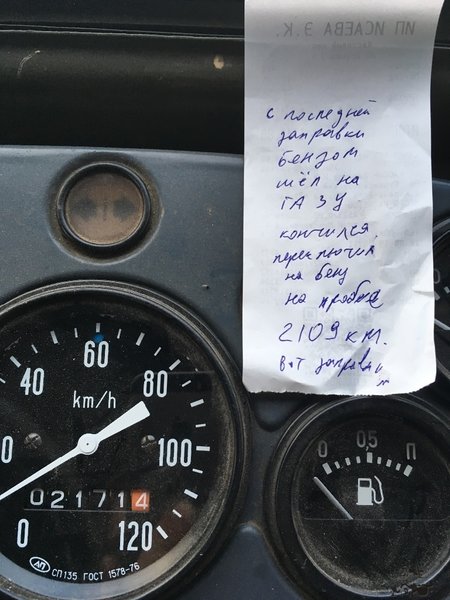 ИП ИСАЕВА Э.К.
с последней
заправки
бензом
шёл на
ГАЗУ.
кончился.
переключил
на бенз
на пробеге
2109 км.
вот заправил
60
40
80
km/h
100
0
120
021714
СП135 ГОСТ 1578-76
0 0,5 П